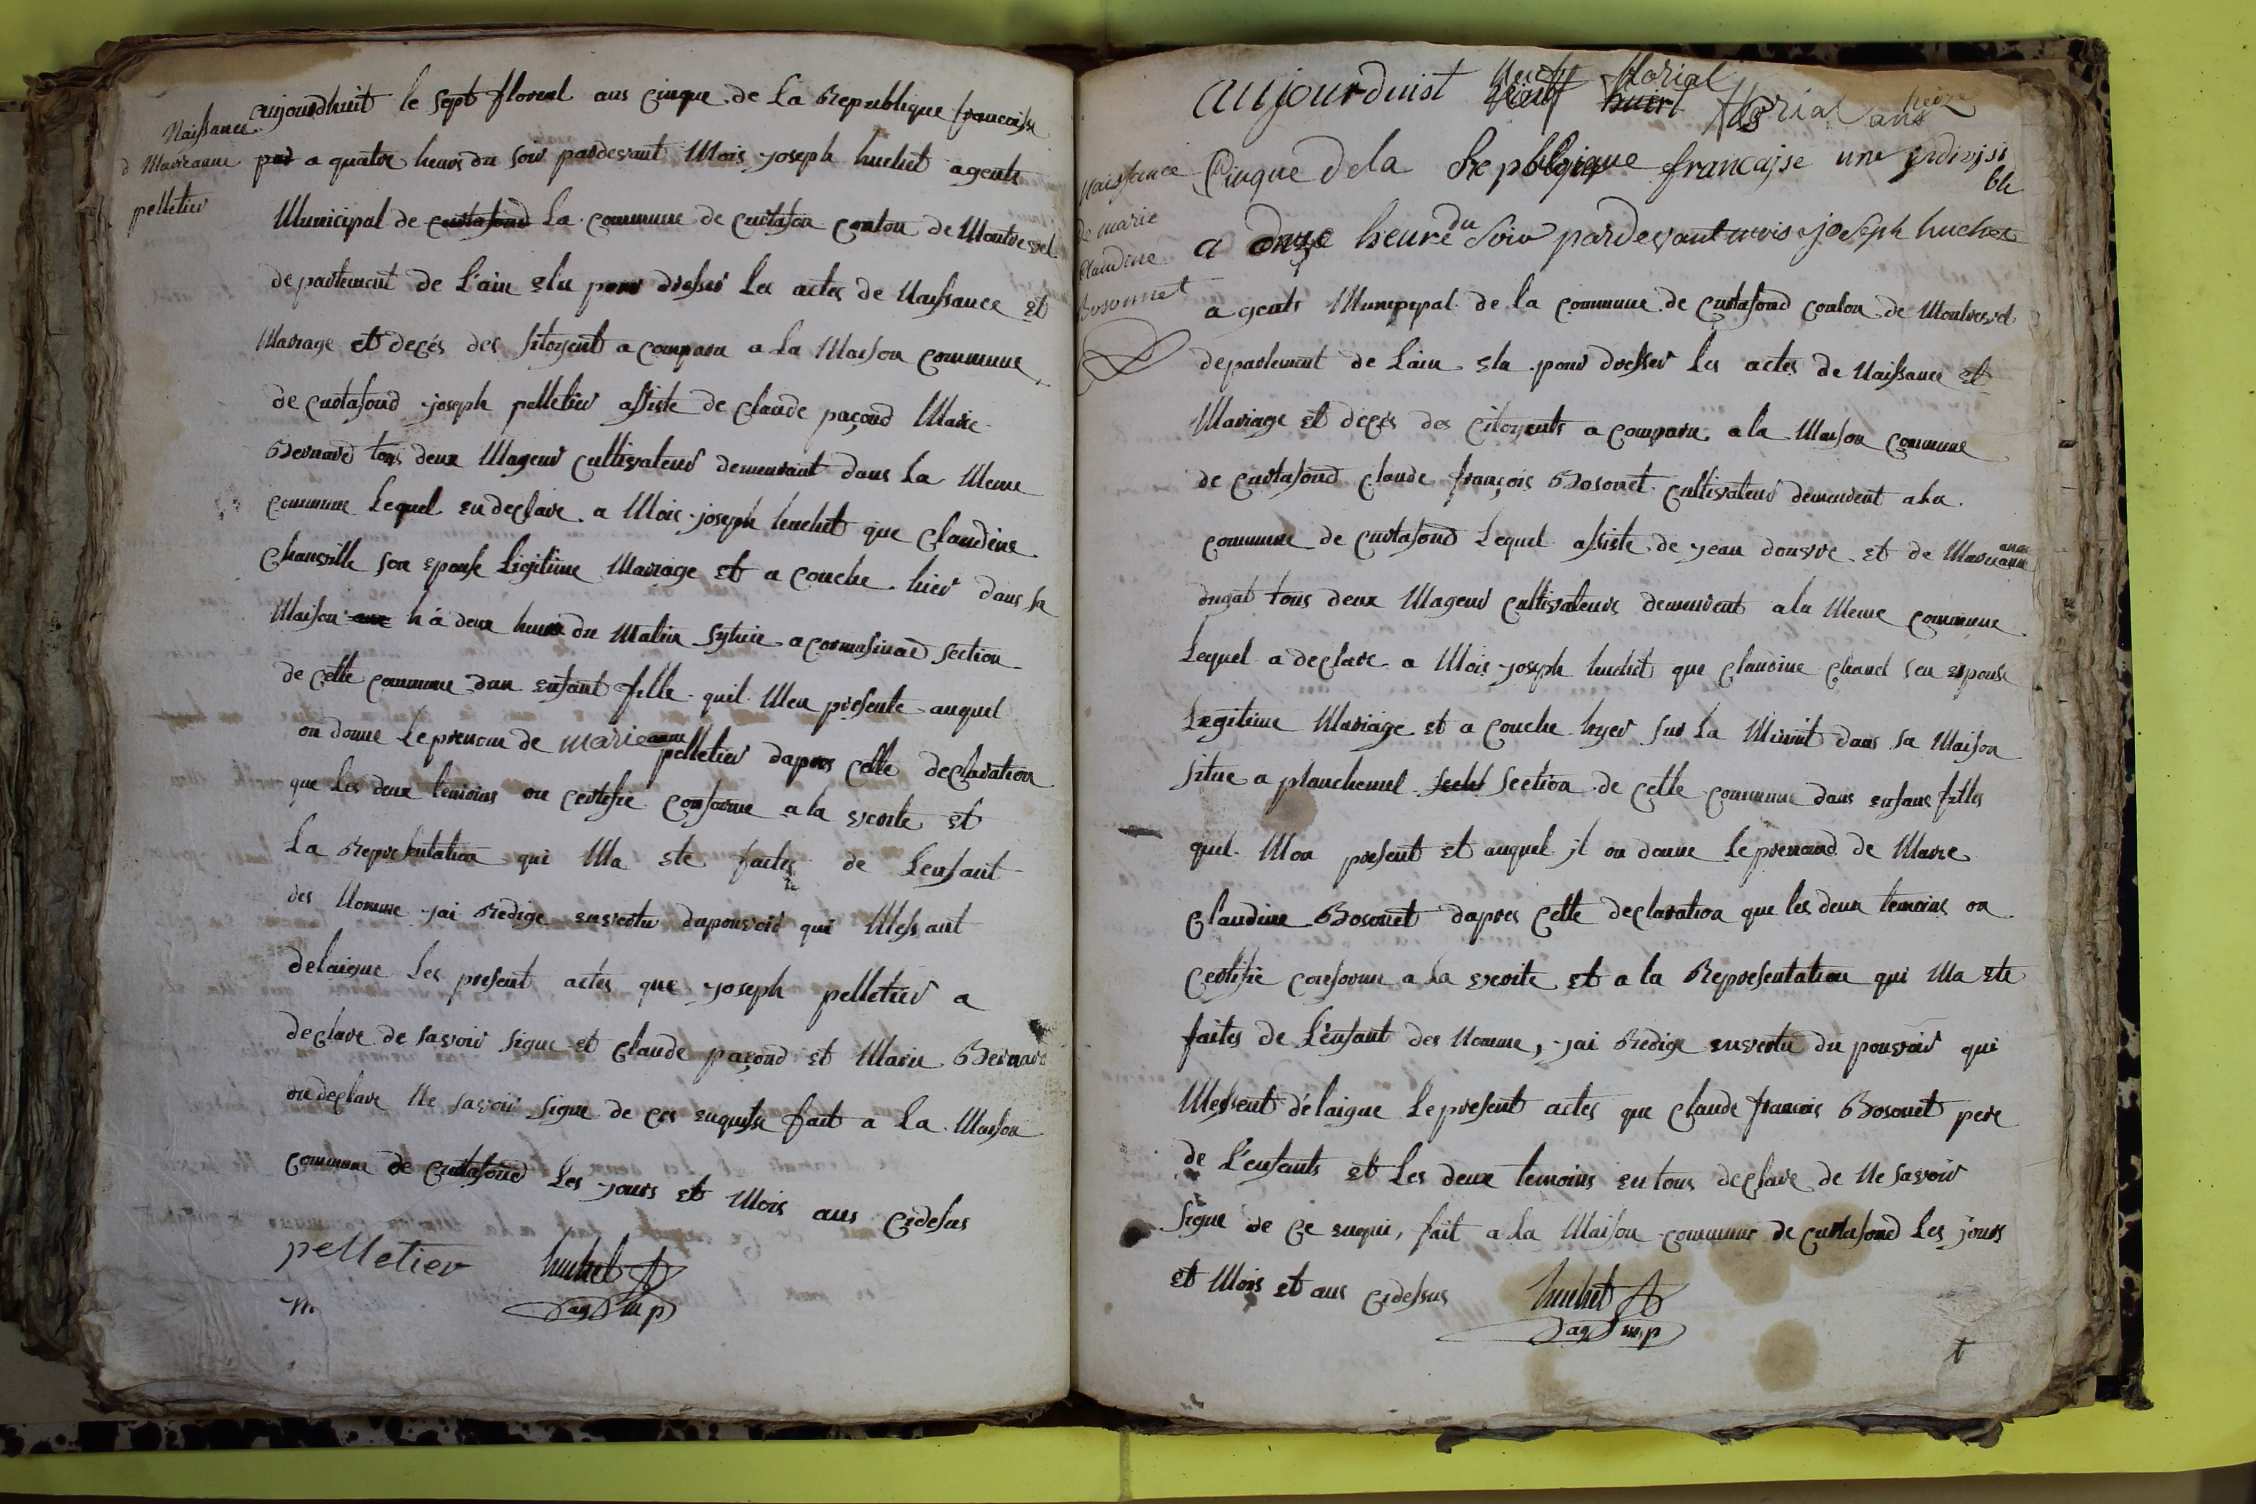 Naissance
d Marieanne
pelletier
aujourdhuit le sept floreal ans cinque de La Republique francaise
a quatre heurs du soir pardevant Mois joseph huchet agents
Municipal de Curtafond La commune de Curtafon conton de Montrevel
departement de L'ain elu pour dresser Les actes de Naissance et
Mariage et decés des sitoyent a comparu a La Maison commune
de curtafond joseph pelletier assiste de claude paçoud Marie
Bernard tous deux Mageur cultivateur demeurant dans La Meme
commune Lequel en declare a Mois joseph huchet que Claudine
Chanville son epouse Ligitime Mariage et a couche hier dans sa
Maison h à deux heurs du Matin sytuie a cormasinad section
de cette commune dun enfant fille quil Men presente auquel
on donne Le prenom de marieanne
pelletier dapres cette declaration
que Les deux temoins on certifie conforme a la verite et
La Representation qui Ma ete faites de Lenfant
des Nomme jai Redige envertu dupouvoir qui Messant
delaigue Les present actes que joseph pelletier a
declare de savoir signe et Claude paçoud et Marie Bernard
on declare Ne savoir signe de ces enquise fait a La Maison
commune de Curtafond Les jours et Mois ans cidesus
pelletier huchet
ag m p
Naissance
de marie
Claudine
Bosonnet
aujourduist neuf florial
florial ans
Cinque dela Republique francaise une jndivisi
ble
a onze heure du soir pardevant mois joseph huchet
agents Municipal de la commune de curtafond conton de Montrevel
departement de Lain elu pour dresser Les actes de Naissance et
Mariage et decés des citoyents a comparu a la Maison commune
de curtafond claude françois Bosonet cultivateur demeurent a La
commune de curtafond Lequel assiste de jean donvre et de Marieanne
dugat tous deux Mageur cultivateurs demeurent a la Meme commune
Lequel a declare a Mois joseph huchet que claudine Chanel son epouse
Legitime Mariage et a couche hyer sur La Minuit dans sa Maison
situe a planchemel section de cette commune dans enfans filles
quil Mon present et auquel jl on donne Le prenond de Marie
Claudine Bosonet dapres cette declaration que les deux temoins on
certifie conforme a la verite et a la Representation qui Ma ete
faites de L'enfant des Nomme, jai Redige envertu du pouvoir qui
Messent délaigue Le present actes que Claude francois Bosonet pere
de L'enfants et Les deux temoins en tous declare de Ne savoir
signe de ce enqui, fait a la Maison commune de curtafond Les jours
et Mois et ans cidessus huchet
ag m p